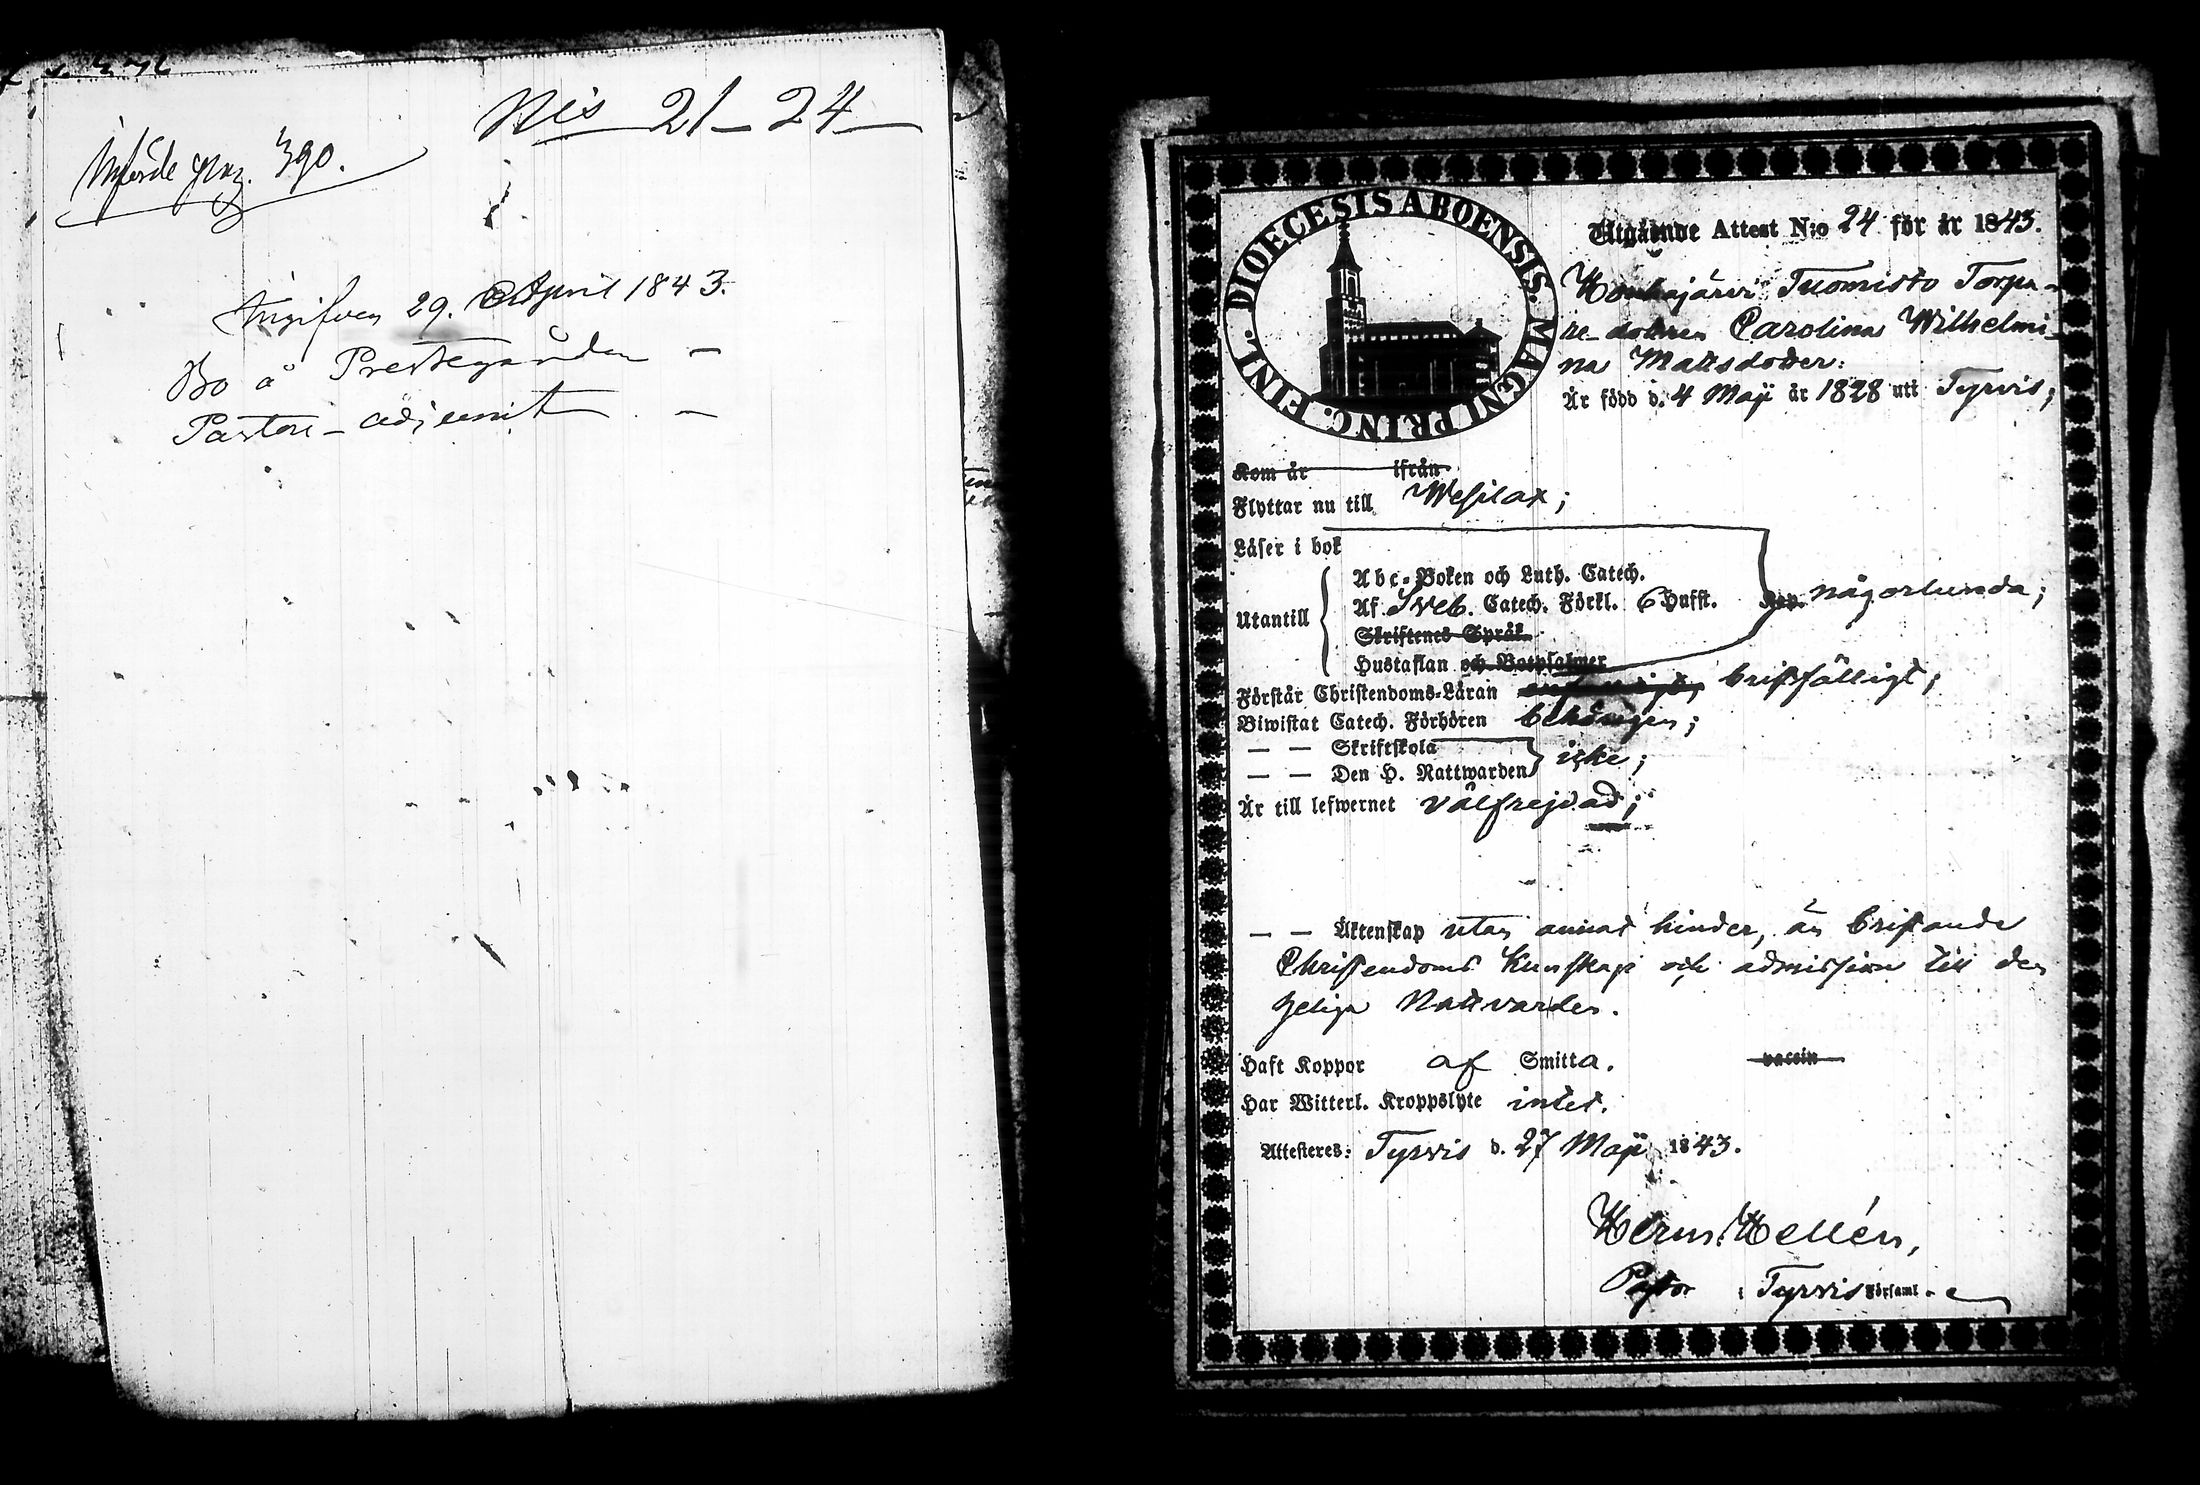 N:is 21-24
Införde pag. 390.
Angifven 29. April 1843.
Bo å Prestegården -
Pastors-adjunct -
DIOECESIS ABOENSIS. MAGNI PRINC. FINL.
Utgående Attest N:o 24 för år 1843.
Houhajärvi Tuomisto Torpa-
re-dottren Carolina Wilhelmi-
na Mattsdotter:
Är född d. 4 Maji år 1828 uti Tyrvis;
Kom år ifrån
Flyttar nu till Wesilax;
Läser i bok
Abc-Boken och Luth. Catech.
Utantill Af Sveb. Catech. Förkl. 6 Hufst. någorlunda;
Skriftenes Språk
Hustaflan och Botpsalmer
Förstår Christendoms-Läran bristfälligt;
Biwistat Catech. Förhören behörigen;
— — Skriftskola
— — Den H. Nattwarden icke;
Är till lefwernet välfrejdad;
— — Äktenskap utan annat hinder, än bristande
Christendoms kunskap och admission till den
heliga Nattvarden.
Haft Koppor af Smitta. vaccin
Har Witterl. Kroppslyte intet.
Attesteres: Tyrvis d. 27 Maji 1843.
Herm. Hellén,
Pastor i Tyrvis Församl.